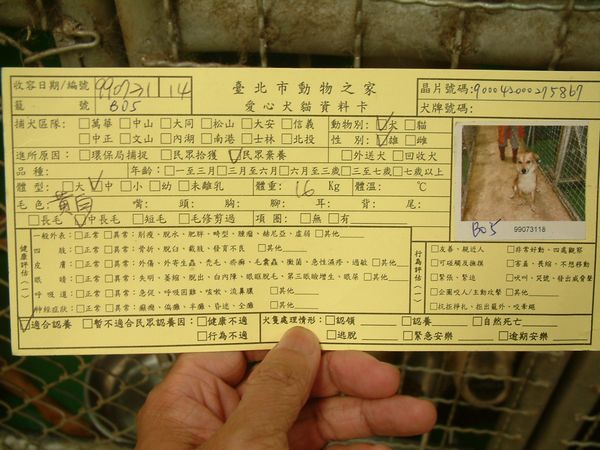 收容日期/編號 990731 14 臺北市動物之家 晶片號碼:900043000275867
籠 號 B05 愛心犬貓資料卡 犬牌號碼:
捕犬區隊: □萬華 □中山 □大同 □松山 □大安 □信義 動物別: ☑犬 □貓
□中正 □文山 □內湖 □南港 □士林 □北投 性 別: ☑雄 □雌
進所原因: □環保局捕捉 □民眾拾獲 ☑民眾棄養 □外送犬 □回收犬
品 種: 年齡: □一至三月 □三月至六月 □六月至三歲 □三至七歲 □七歲以上
體 型: □大 ☑中 □小 □幼 □未離乳 體重: 16 Kg 體溫: ℃
毛 色: 黃白 嘴: 頭: 胸: 腳: 耳: 背: 尾:
□長毛 ☑中長毛 □短毛 □毛修剪過 項 圈: □無 □有
B05 99073118
健康評估(一)
一般外表: □正常 □異常: 削瘦、脫水、肥胖、畸型、腫瘤、赫尼亞、虛弱 □其他
四 肢: □正常 □異常: 骨折、脫臼、截肢、發育不良 □其他
皮 膚: □正常 □異常: 外傷、外寄生蟲、禿毛、疥癬、毛囊蟲、黴菌、急性濕疹、過敏 □其他
眼 睛: □正常 □異常: 失明、萎縮、脫出、白內障、眼瞼脫毛、第三眼瞼增生、眼屎 □其他
呼 吸 道: □正常 □異常: 急促、呼吸困難、咳嗽、流鼻膿 □其他
神經症狀: □正常 □異常: 癲癇、偏癱、半癱、昏迷、全癱 □其他
行為評估(一)
□友善、親近人 □非常好動、四處觀察
□可碰觸及撫摸 □害羞、長縮、不想移動
□緊張、緊迫 □吠叫、哭號、發出威脅聲
□企圖咬人/主動攻擊 □其他
□抗拒掙扎、拒出籠外、咬牽繩
☑適合認養 □暫不適合民眾認養因: □健康不適 犬隻處理情形: □認領 □認養 □自然死亡
□行為不適 □逃脫 □緊急安樂 □逾期安樂